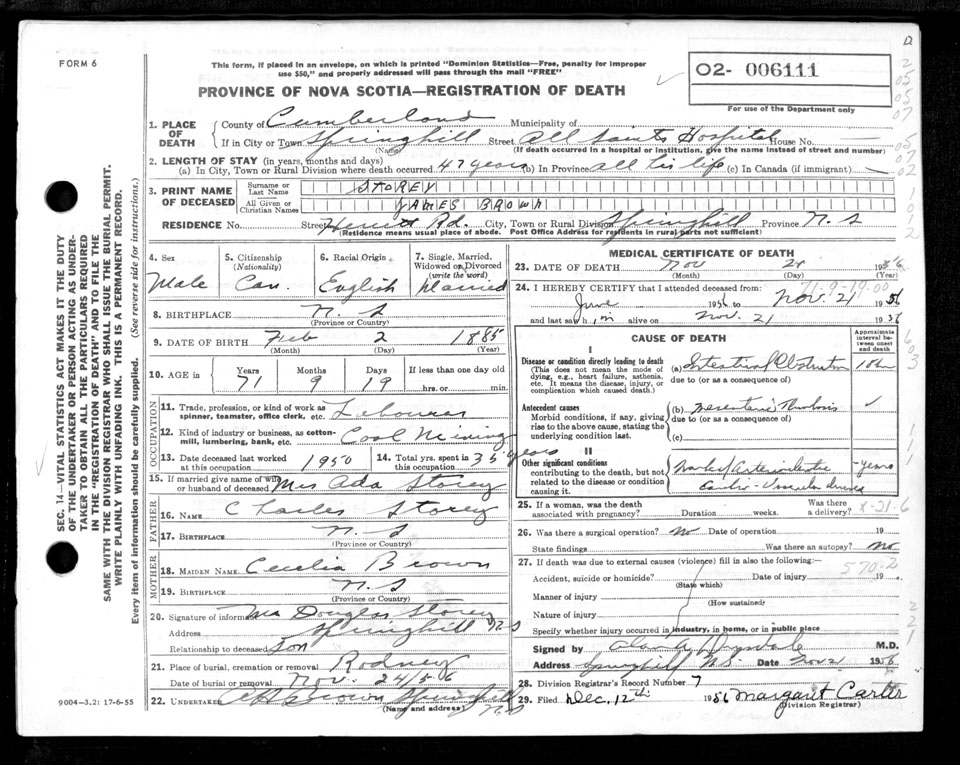 FORM 6
This form, if placed in an envelope, on which is printed "Dominion Statistics—Free, penalty for improper
use $50," and properly addressed will pass through the mail "FREE"
PROVINCE OF NOVA SCOTIA—REGISTRATION OF DEATH
02- 006111
For use of the Department only
1. PLACE OF DEATH
County of Cumberland Municipality of
If in City or Town Springhill Street All Saints Hospital House No.
(Name) (If death occurred in a hospital or institution, give the name instead of street and number)
2. LENGTH OF STAY (in years, months and days)
(a) In City, Town or Rural Division where death occurred 47 years (b) In Province all his life (c) In Canada (if immigrant)
3. PRINT NAME OF DECEASED
Surname or Last Name STOREY
All Given or Christian Names JAMES BROWN
RESIDENCE No. Street Herrett Rd. City, Town or Rural Division Springhill Province N. S
(Residence means usual place of abode. Post Office Address for residents in rural parts not sufficient)
4. Sex Male
5. Citizenship (Nationality) Can.
6. Racial Origin English
7. Single, Married, Widowed or Divorced (write the word) Married
8. BIRTHPLACE N. S
(Province or Country)
9. DATE OF BIRTH Feb 2 1885
(Month) (Day) (Year)
10. AGE in Years 71 Months 9 Days 19 If less than one day old hrs. or min.
OCCUPATION
11. Trade, profession, or kind of work as spinner, teamster, office clerk, etc. Labourer
12. Kind of industry or business, as cotton-mill, lumbering, bank, etc. Coal Mining
13. Date deceased last worked at this occupation 1950
14. Total yrs. spent in this occupation 35 years
15. If married give name of wife or husband of deceased Mrs Ada Storey
FATHER
16. NAME Charles Storey
17. BIRTHPLACE N. S
(Province or Country)
MOTHER
18. MAIDEN NAME Cecelia Brown
19. BIRTHPLACE N. S
(Province or Country)
20. Signature of informant Douglas Storey
Address Springhill N S
Relationship to deceased Son
21. Place of burial, cremation or removal Rodney
Date of burial or removal Nov. 24/56
22. UNDERTAKER Brown Springhill N S
(Name and address)
9004—3.2: 17-6-55
MEDICAL CERTIFICATE OF DEATH
23. DATE OF DEATH Nov 21 1956
(Month) (Day) (Year)
24. I HEREBY CERTIFY that I attended deceased from:
June 1956 to Nov. 21 1956
and last saw him alive on Nov. 21 1956
CAUSE OF DEATH
Approximate interval between onset and death
I
Disease or condition directly leading to death
(This does not mean the mode of dying, e.g., heart failure, asthenia, etc. It means the disease, injury, or complication which caused death.)
(a) Intestinal Obstruction
due to (or as a consequence of)
Antecedent causes
Morbid conditions, if any, giving rise to the above cause, stating the underlying condition last.
(b) Mesenteric Thrombosis
due to (or as a consequence of)
(c)
II
Other significant conditions
contributing to the death, but not related to the disease or condition causing it.
Marked Arteriosclerotic years
Cardio-Vascular disease
25. If a woman, was the death associated with pregnancy? Duration weeks. Was there a delivery?
26. Was there a surgical operation? No Date of operation 19
State findings Was there an autopsy? No
27. If death was due to external causes (violence) fill in also the following:—
570-2
Accident, suicide or homicide? Date of injury 19
(State which)
Manner of injury
(How sustained)
Nature of injury
Specify whether injury occurred in industry, in home, or in public place
Signed by M.D.
Address Springhill N.S. Date 1956
28. Division Registrar's Record Number 7
29. Filed Dec. 12th 1956 Margaret Carter
(Division Registrar)
SEC. 14—VITAL STATISTICS ACT MAKES IT THE DUTY
OF THE UNDERTAKER OR PERSON ACTING AS UNDER-
TAKER TO OBTAIN ALL THE PARTICULARS REQUIRED
IN THE "REGISTRATION OF DEATH" AND TO FILE THE
SAME WITH THE DIVISION REGISTRAR WHO SHALL ISSUE THE BURIAL PERMIT.
WRITE PLAINLY WITH UNFADING INK. THIS IS A PERMANENT RECORD.
Every item of information should be carefully supplied. (See reverse side for instructions.)